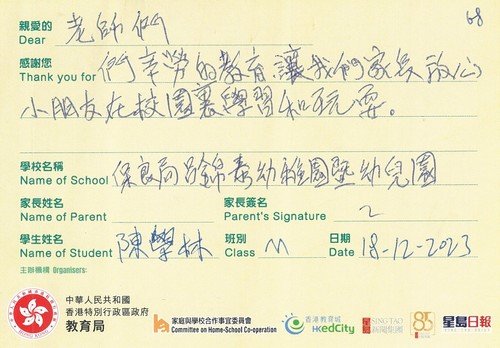 68
親愛的
Dear 老師們
感謝您
Thank you for 們辛勞的教育讓我們家長放心
小朋友在校園裏學習和玩耍。
學校名稱
Name of School 保良局 幼稚園暨幼兒園
家長姓名
Name of Parent
家長簽名
Parent's Signature
學生姓名
Name of Student 陳學林
班別
Class M
日期
Date 18-12-2023
主辦機構 Organisers:
中華人民共和國
香港特別行政區政府
教育局
家庭與學校合作事宜委員會
Committee on Home-School Co-operation
香港教育城
HKedCity
SING TAO
新聞集團
85
星島日報